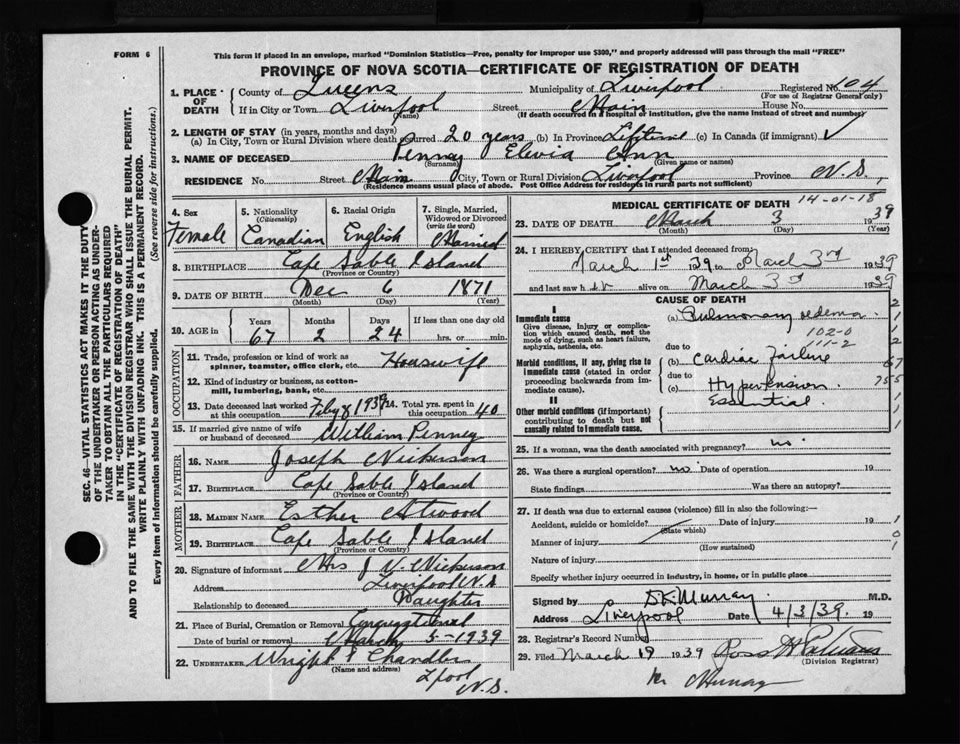 FORM 6
This form if placed in an envelope, marked "Dominion Statistics—Free, penalty for improper use $300," and properly addressed will pass through the mail "FREE"
PROVINCE OF NOVA SCOTIA—CERTIFICATE OF REGISTRATION OF DEATH
1. PLACE OF DEATH County of Queens Municipality of Liverpool Registered No. 104
(For use of Registrar General only)
If in City or Town Liverpool Street Main House No.
(Name) (If death occurred in a hospital or institution, give the name instead of street and number)
2. LENGTH OF STAY (in years, months and days)
(a) In City, Town or Rural Division where death occurred 20 years (b) In Province Lifetime (c) In Canada (if immigrant) ✓
3. NAME OF DECEASED Penney Elevia Ann
(Surname) (Given name or names)
RESIDENCE No. Street Main City, Town or Rural Division Liverpool Province N.S.
(Residence means usual place of abode. Post Office Address for residents in rural parts not sufficient)
4. Sex Female
5. Nationality (Citizenship) Canadian
6. Racial Origin English
7. Single, Married, Widowed or Divorced (write the word) Married
8. BIRTHPLACE Cape Sable Island
(Province or Country)
9. DATE OF BIRTH Dec 6 1871
(Month) (Day) (Year)
10. AGE in Years 67 Months 2 Days 24 If less than one day old hrs. or min.
OCCUPATION
11. Trade, profession or kind of work as spinner, teamster, office clerk, etc. Housewife
12. Kind of industry or business, as cotton-mill, lumbering, bank, etc.
13. Date deceased last worked at this occupation Total yrs. spent in this occupation 40
15. If married give name of wife or husband of deceased William Penney
FATHER
16. Name Joseph Nickerson
17. Birthplace Cape Sable Island
(Province or Country)
MOTHER
18. Maiden Name Esther Atwood
19. Birthplace Cape Sable Island
(Province or Country)
20. Signature of informant Mrs J W. Nickerson
Address Liverpool N.S
Relationship to deceased Daughter
21. Place of Burial, Cremation or Removal Congregational
Date of burial or removal March 5-1939
22. UNDERTAKER Wright & Chandler
(Name and address)
L'pool
N.S.
MEDICAL CERTIFICATE OF DEATH
14-01-18
23. DATE OF DEATH March 3 1939
(Month) (Day) (Year)
24. I HEREBY CERTIFY that I attended deceased from:
March 1st 1939 to March 3rd 1939
and last saw her alive on March 3rd 1939
CAUSE OF DEATH
I
Immediate cause (a) Pulmonary oedema
Give disease, injury or complication which caused death, not the mode of dying, such as heart failure, asphyxia, asthenia, etc.
102-0
111-2
due to
Morbid conditions, if any, giving rise to immediate cause (stated in order proceeding backwards from immediate cause).
(b) Cardiac Failure
due to
(c) Hypertension
Essential
II
Other morbid conditions (if important) contributing to death but not causally related to immediate cause.
25. If a woman, was the death associated with pregnancy? no
26. Was there a surgical operation? no Date of operation 19
State findings Was there an autopsy?
27. If death was due to external causes (violence) fill in also the following:—
Accident, suicide or homicide? Date of injury 19
(State which)
Manner of injury
(How sustained)
Nature of injury
Specify whether injury occurred in industry, in home, or in public place
Signed by D K. Murray M.D.
Address Liverpool 4/3/39. 19
28. Registrar's Record Number
29. Filed March 19 1939
(Division Registrar)
Murray
SEC. 46—VITAL STATISTICS ACT MAKES IT THE DUTY
OF THE UNDERTAKER OR PERSON ACTING AS UNDER-
TAKER TO OBTAIN ALL THE PARTICULARS REQUIRED
IN THE "CERTIFICATE OF REGISTRATION OF DEATH"
AND TO FILE THE SAME WITH THE DIVISION REGISTRAR WHO SHALL ISSUE THE BURIAL PERMIT.
WRITE PLAINLY WITH UNFADING INK. THIS IS A PERMANENT RECORD.
Every item of information should be carefully supplied. (See reverse side for instructions).